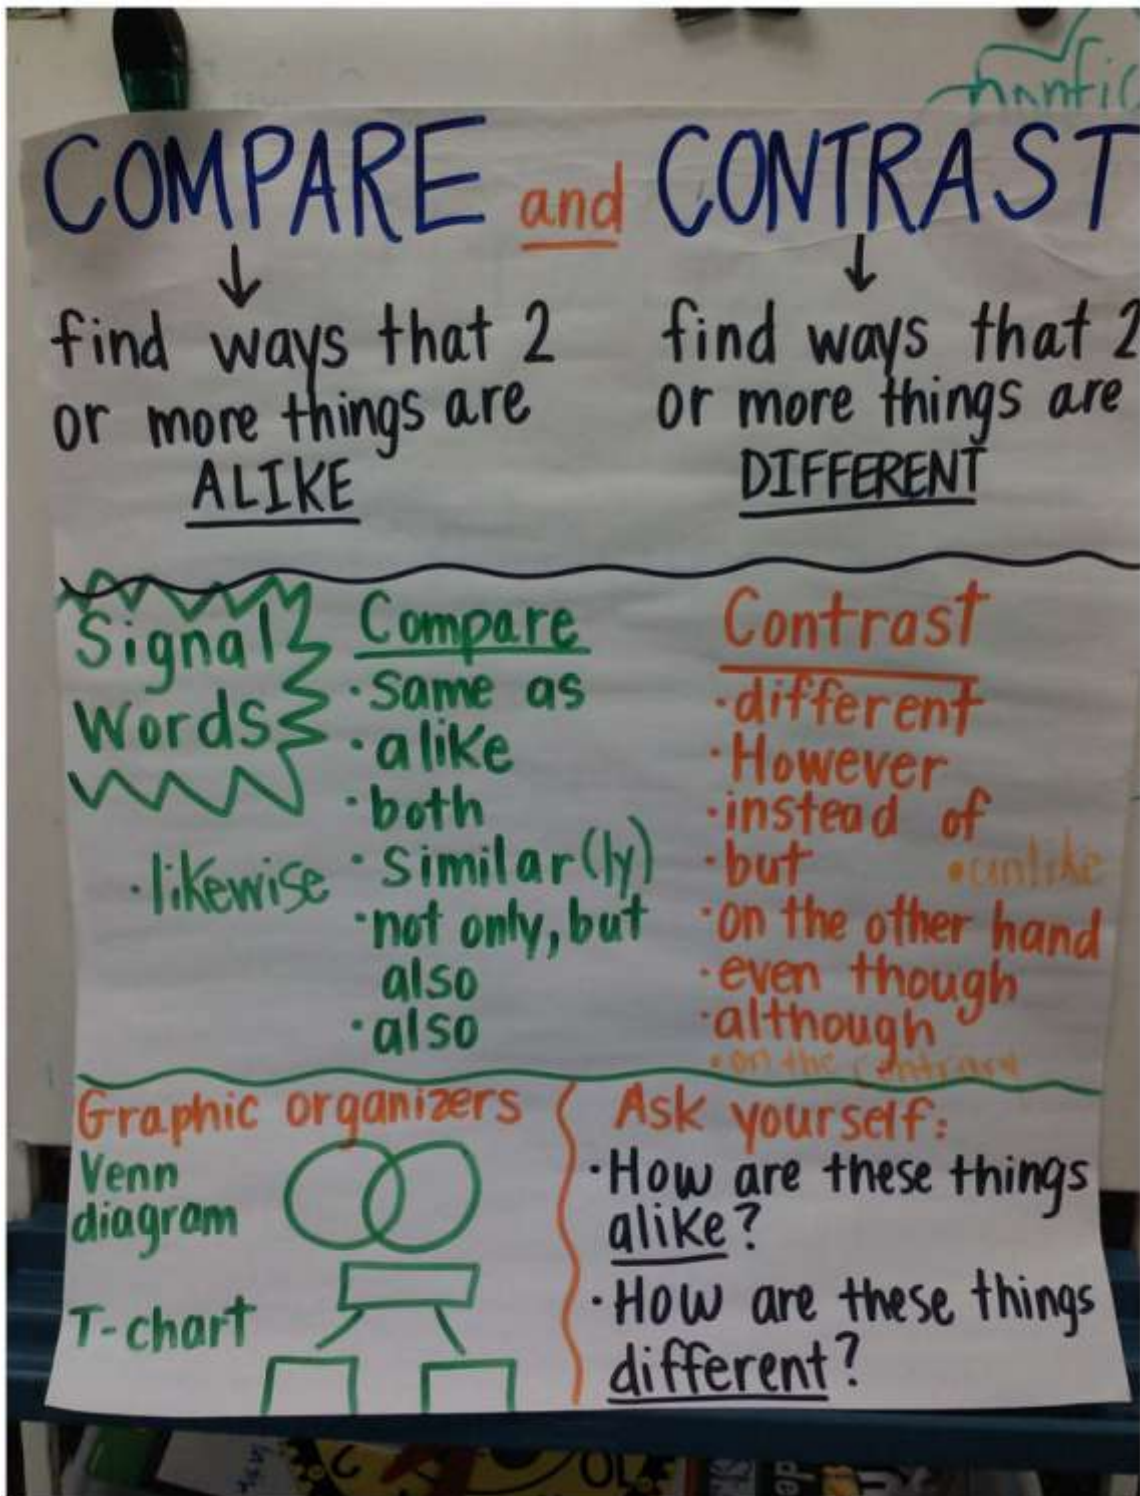 COMPARE and CONTRAST
find ways that 2
or more things are
ALIKE
find ways that 2
or more things are
DIFFERENT
Signal
Words
Compare
• same as
• alike
• both
• similar(ly)
• likewise
• not only, but
also
• also
Contrast
• different
• However
• instead of
• but
• unlike
• on the other hand
• even though
• although
• on the contrary
Graphic organizers
Venn
diagram
T-chart
Ask yourself:
• How are these things
alike?
• How are these things
different?